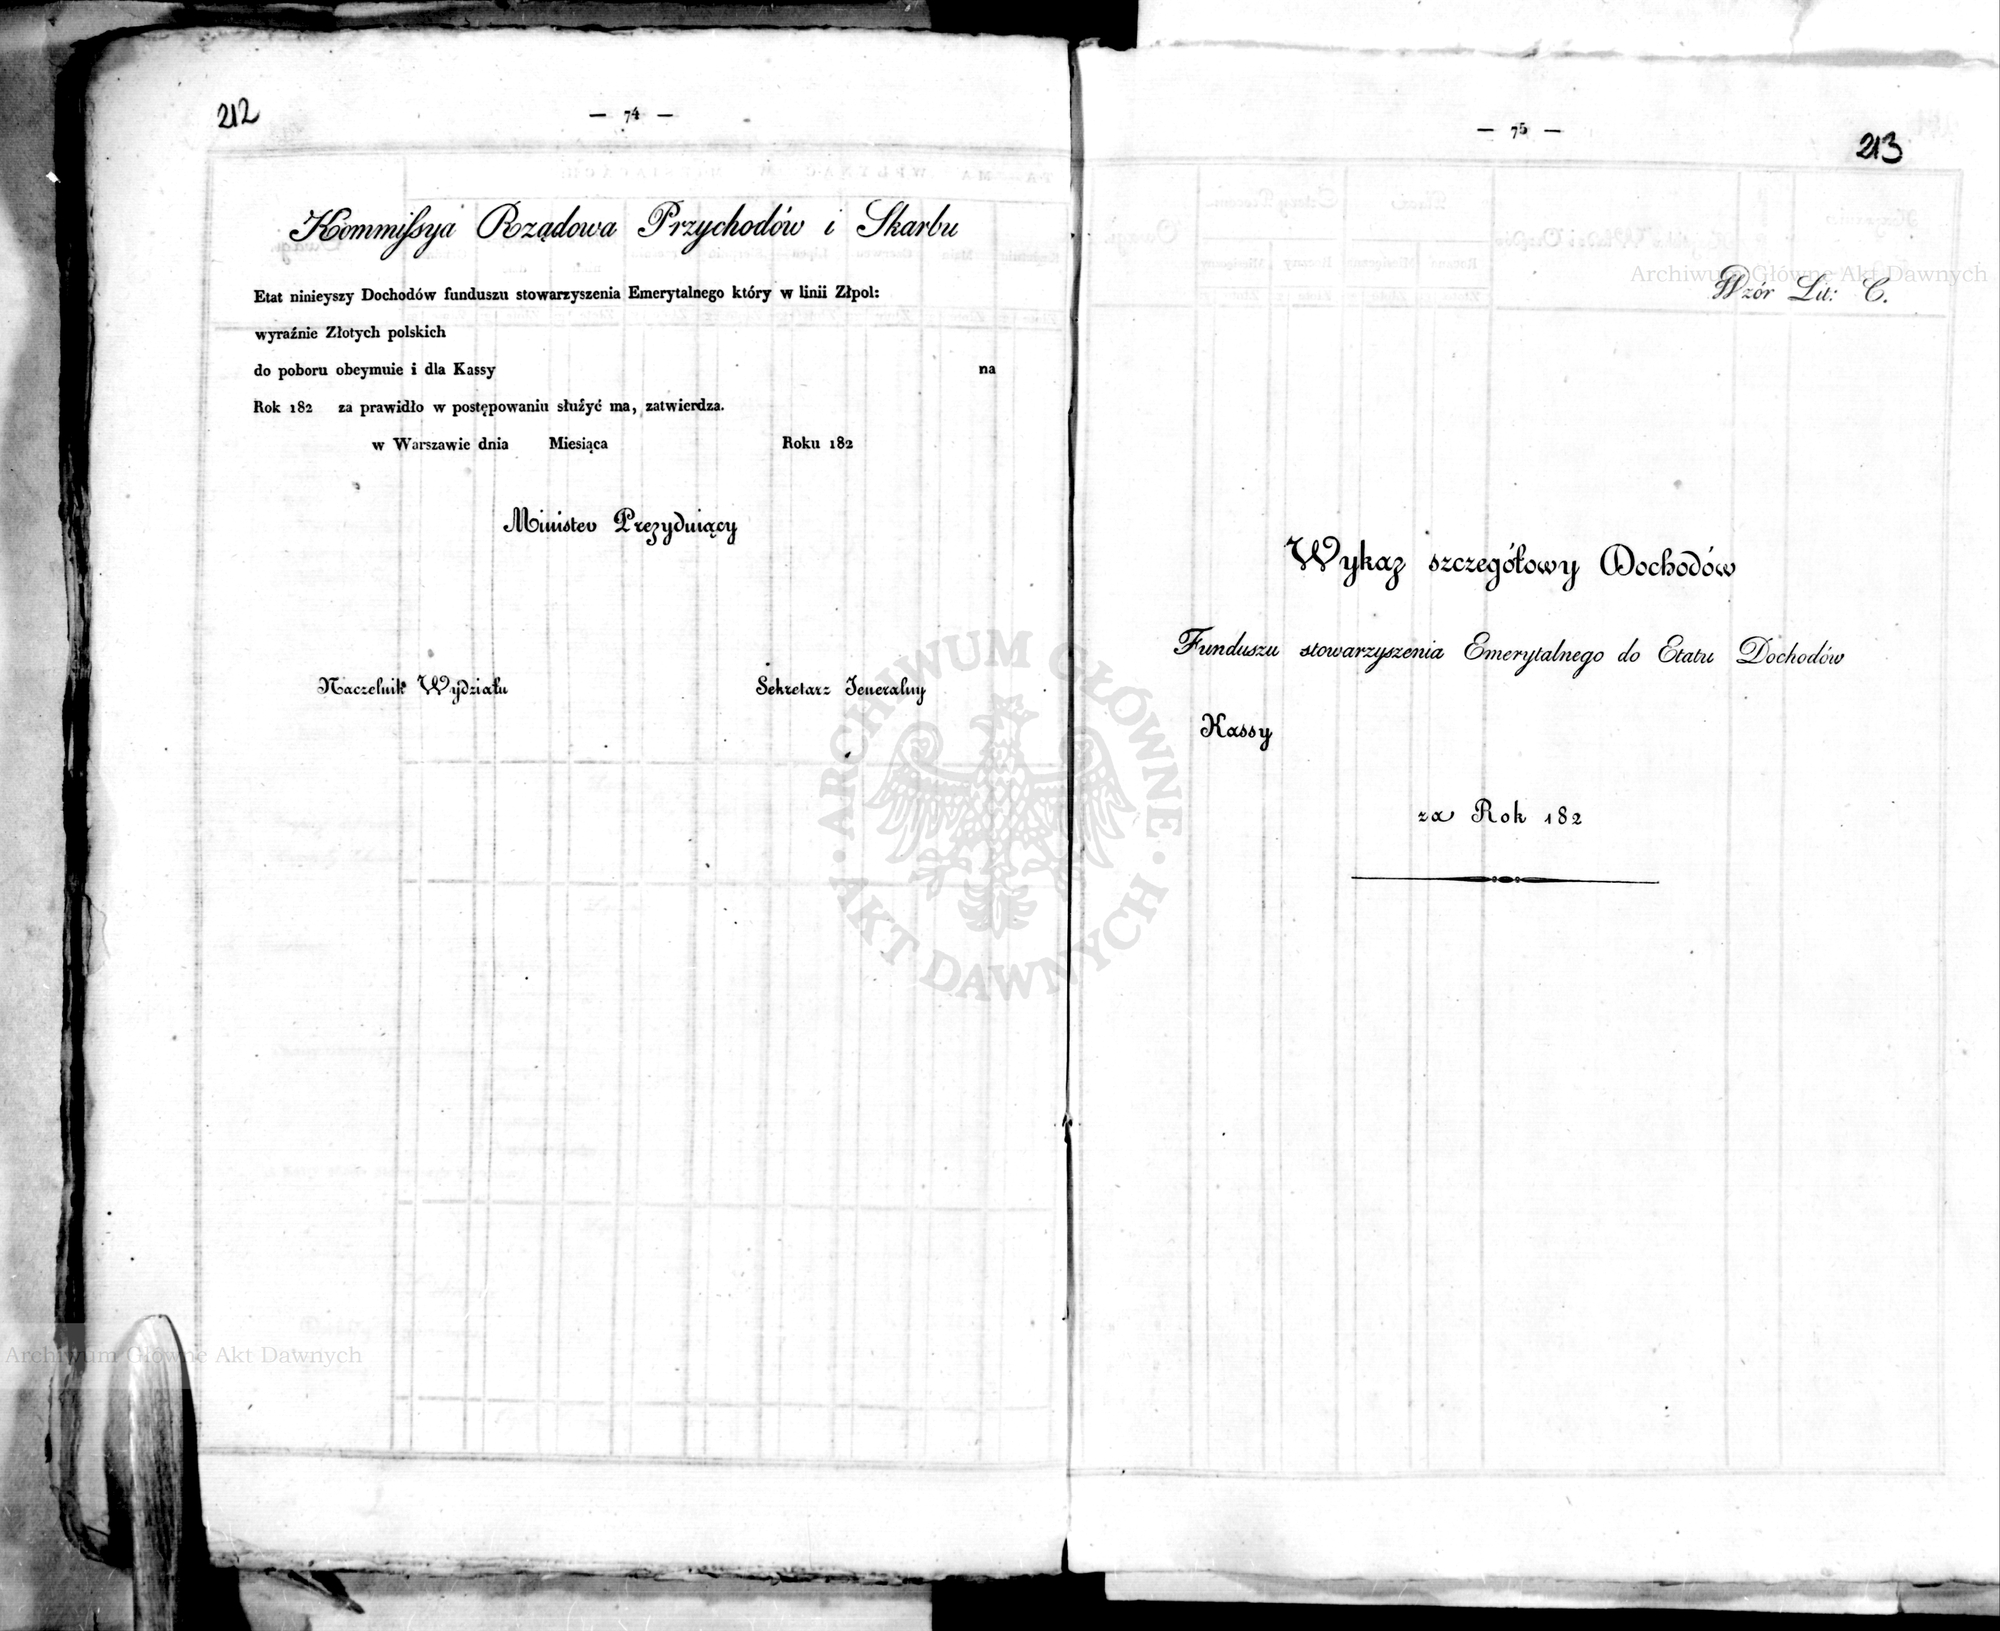 212
— 74 —
Kommissya Rządowa Przychodów i Skarbu
Etat ninieyszy Dochodów funduszu stowarzyszenia Emerytalnego który w linii Złpol:
wyraźnie Złotych polskich
do poboru obeymuie i dla Kassy na
Rok 182 za prawidło w postępowaniu służyć ma, zatwierdza.
w Warszawie dnia Miesiąca Roku 182
Minister Prezyduiący
Naczelnik Wydziału Sekretarz Jeneralny
Archiwum Główne Akt Dawnych
— 75 —
213
Archiwum Główne Akt Dawnych
Wzór Lit: C.
Wykaz szczegółowy Dochodów
Funduszu stowarzyszenia Emerytalnego do Etatu Dochodów
Kassy
za Rok 182
ARCHIWUM GŁÓWNE
AKT DAWNYCH